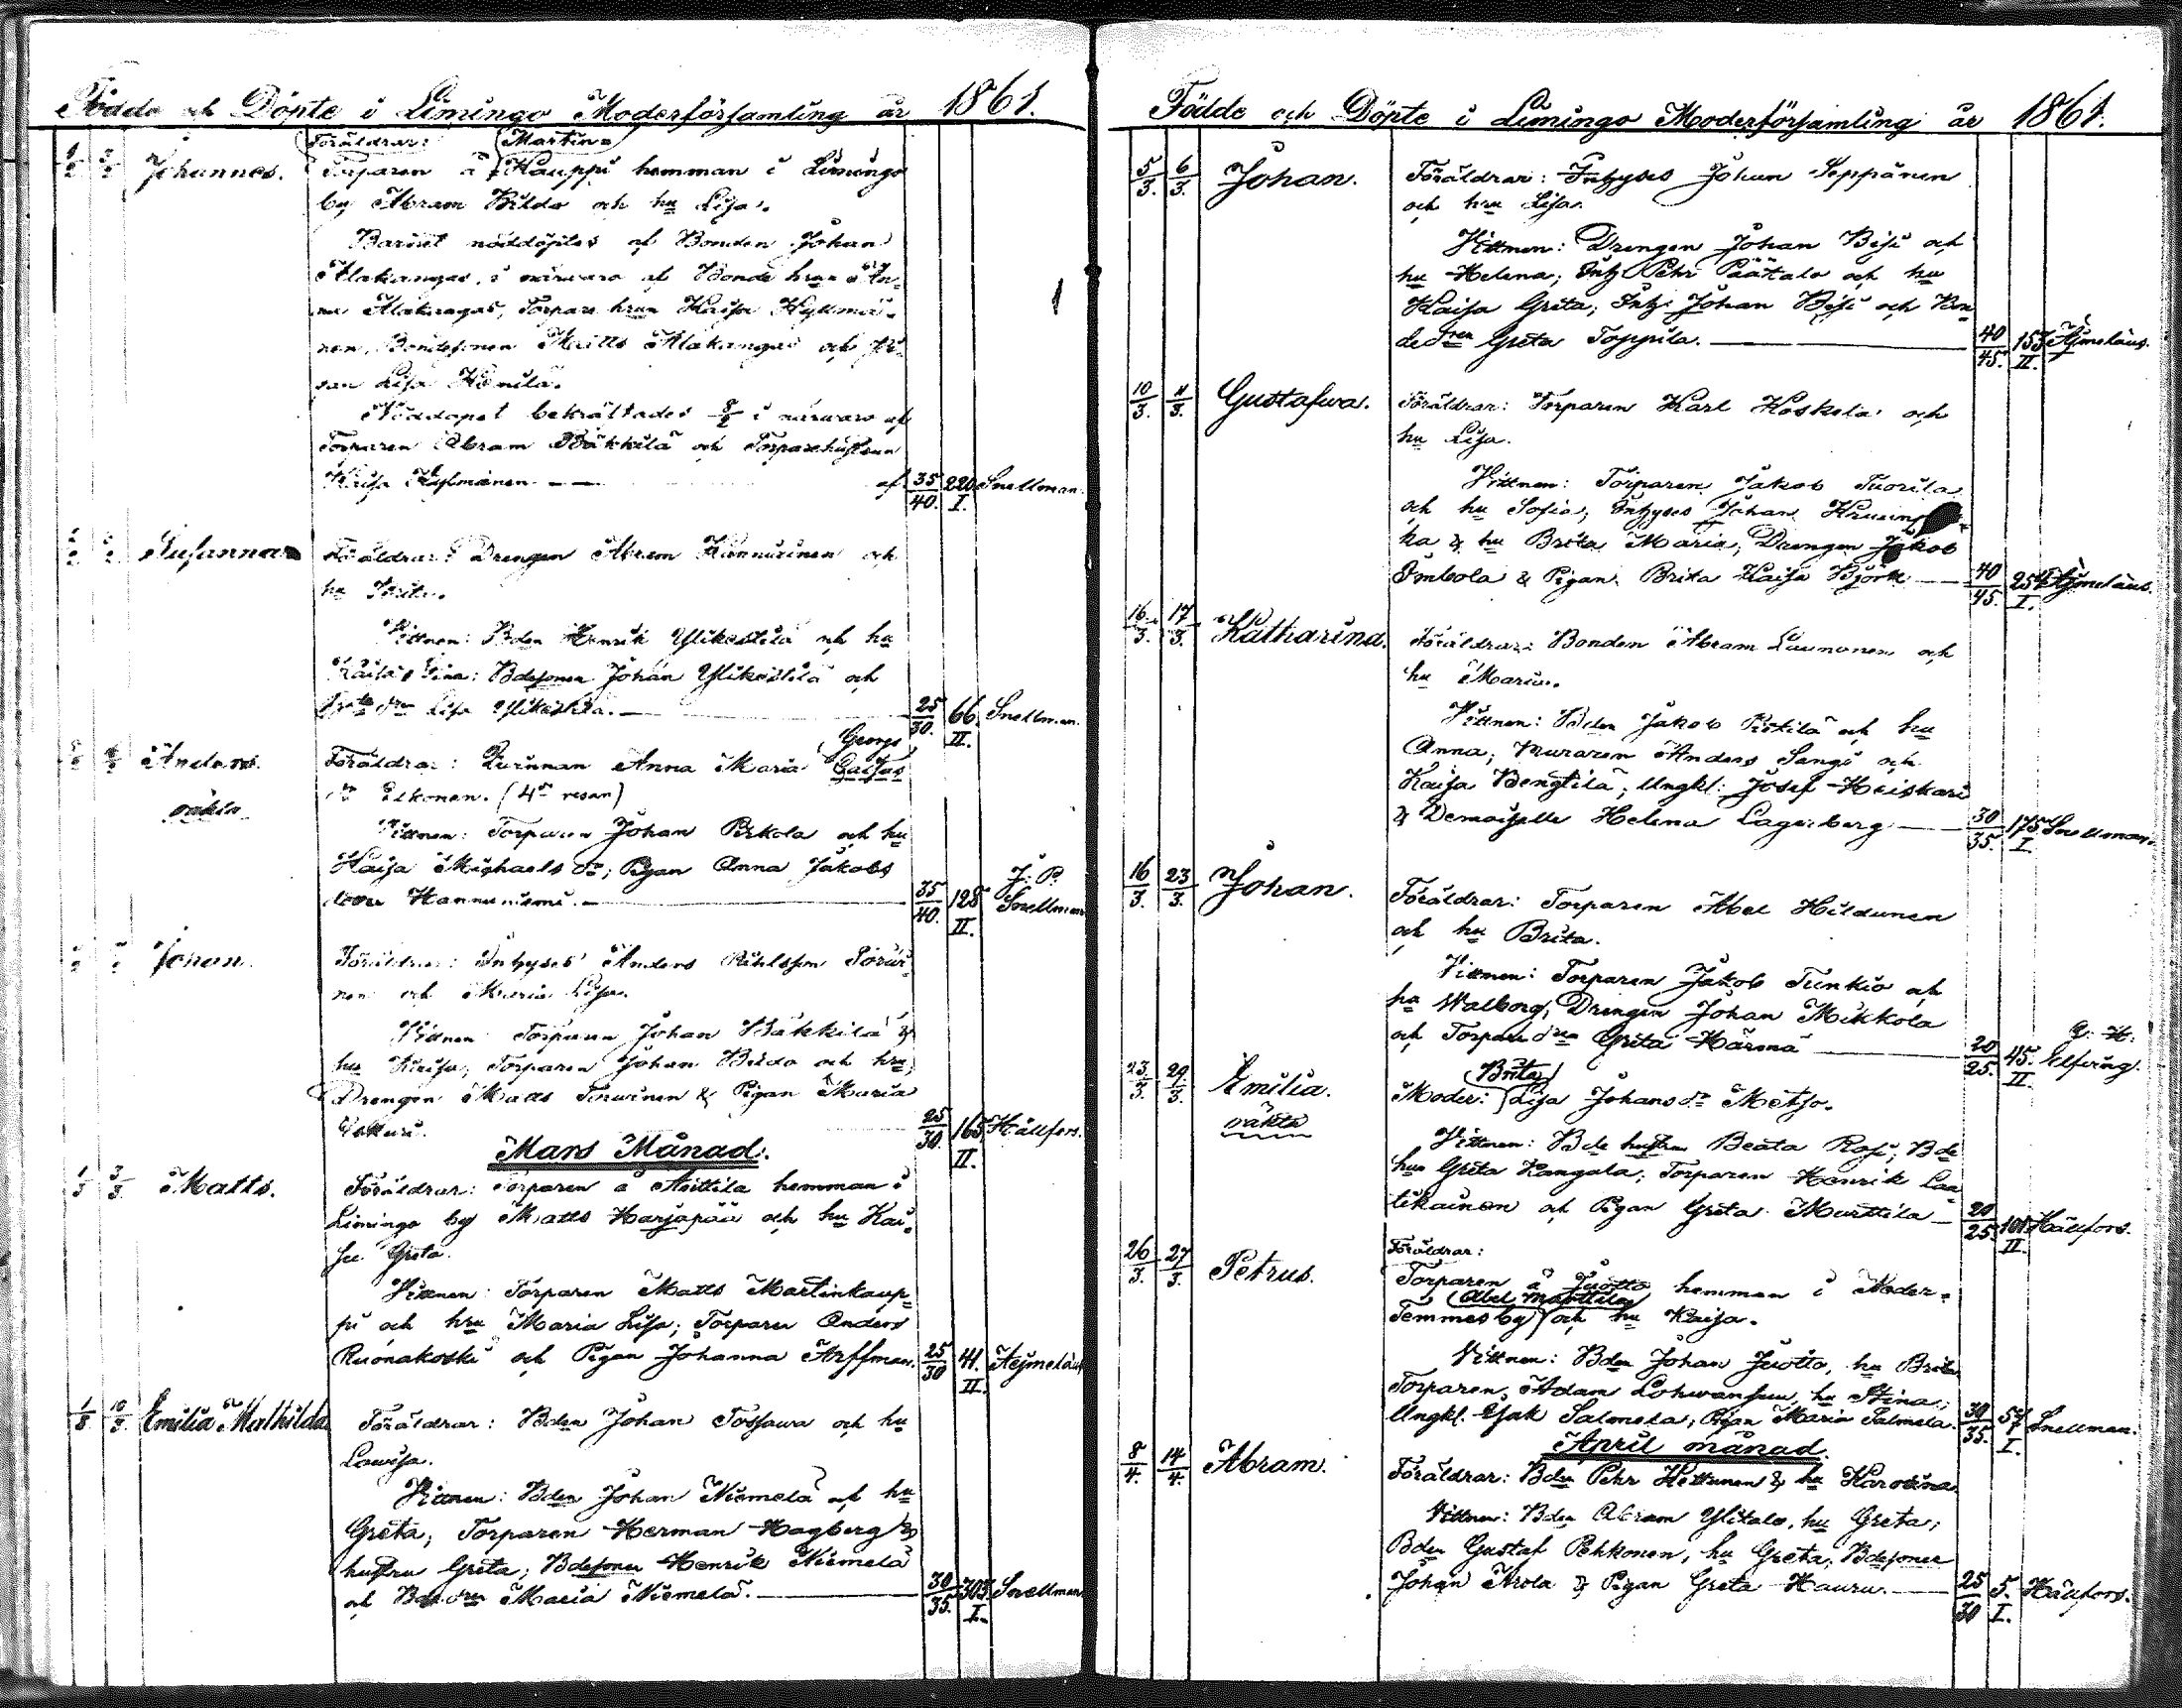 Födde och Döpte i Limingo Moderförsamling år 1861.
Föräldrar: Martin-
Johannes. Torparen å Kauppi hemman i Limingo
by Abram Bildo och hu Lisa.
Barnet nöddöptes af Bonden Johan
Alakangas, i närwaro af Bonde hrun An-
na Alakangas, Torpare hrun Kaisa Kyllmä-
nen, Bondesonen Matts Alakangas och
Lisa
Nöddopet bekräftades 8/2 i närwaro af
Torparen Abram Bäkkilä och Torparehustrun
Kaisa Kyllmänen — — af 35/40. 220 I. Snellman.
Susanna Föräldrar: Drengen Abram och
hu Brita.
Vittnen: Bden Henrik Ylikestilä och hu
Kaisa Stina; Bdesonen Johan Ylikestilä och
dren Lisa Ylikestilä. — 25/30. 66. II. Snellman.
Georgs
Anders. Föräldrar: Qwinnan Anna Maria Caisas
oäkta dr Elkonen. (4de resan)
Vittnen: Torparen Johan Pirkola och hu
Kaisa Michaels dr; Pigan Anna Jakobs
Hannuniemi. — 35/40. 128 II. J. P. Snellman
Johan. Föräldrar: Inhyses Anders
nen och Maria Lisa.
Vittnen: Torparen Johan Bäkkilä &
hu Kaisa, Torparen Johan Bildo och hru
Drengen Matts & Pigan Maria
25/30 165 II. Hällfors.
Mars Månad.
1/3 3/3 Matts. Föräldrar: Torparen å Anttila hemman i
Limingo by Matts Harjapää och hu Kai-
sa Greta.
Vittnen: Torparen Matts Martinkaup-
pi och hru Maria Lisa; Torparen Anders
Ruonakoski och Pigan Johanna Arffman. 25/30 41. II. Aejmelaus
1/3 10/3 Emilia Mathilda Föräldrar: Bden Johan Tossawa och hu
Lowisa.
Vittnen: Bden Johan Niemelä och hu
Greta; Torparen Herman Hagberg &
hustru Greta; Bdesonen Henrik Niemelä
och Bde dren Maria Niemelä. — 30/35. 303 I. Snellman
Födde och Döpte i Limingo Moderförsamling år 1861.
5/3. 6/3. Johan. Föräldrar: Inhyses Johan Seppänen
och hru Lisa.
Vittnen: Drengen Johan Bisi och
hu Helena; Inh. Pehr Päätalo och hu
Kaisa Greta; Inh. Johan Bisi och Bon-
de dren Greta Toppila. — 40/45. 153 II. Aejmelæus.
10/3. 11/3. Gustafwa. Föräldrar: Torparen Karl Koskela och
hu Lisa.
Vittnen: Torparen Jakob Tuorila
och hu Sofia; Inhyses Johan
ka & hu Brita Maria; Drengen Jakob
Imbola & Pigan Brita Kaisa Björk — 40/45. 254 I. Aejmelæus.
16/3. 17/3. Katharina. Föräldrar: Bonden Abram Laumonen och
hu Maria.
Vittnen: Bden Jakob Pietilä och hu
Anna; Muraren Anders Sangi och
Kaisa Bengtilä; Ungkl: Josef Heiskari
& Demoiselle Helena Lagerberg — 30/35. 175 I. Snellman.
16/3. 23/3. Johan. Föräldrar: Torparen Abel Hildunen
och hu Brita.
Vittnen: Torparen Jakob Tunkio och
hu Walborg; Drengen Johan Mikkola
och Torpare dren Greta Härmä — 20/25. 45. II. G. H. Elfving.
Brita
23/3. 29/3. Emilia. Moder: Lisa Johans dr Metso.
oäkta Vittnen: Bde hustrun Beata Rosi; Bde
hun Greta Kangala; Torparen Henrik Laa-
tikainen och Pigan Greta Murttila — 20/25. 101 II. Hällfors.
Föräldrar:
26/3. 27/3. Petrus. Torparen å Juotto hemman i Neder-
Abel Marttila
Temmes by och hu Kaisa.
Vittnen: Bden Johan Juotto, hu Brita
Torparen Adam Lohwansuu, hu Stina;
Ungkl. Isak Salmela; Pigan Maria Salmela. 30/35. 57 I. Snellman.
April månad.
8/4. 14/4. Abram. Föräldrar: Bden Pehr Kettunen & hu Karolina
Vittnen: Bden Abram Ylitalo, hu Greta;
Bden Gustaf Pehkonen, hu Greta; Bdesonen
Johan Arola & Pigan Greta Hauru. — 25/30 5. I. Hällfors.